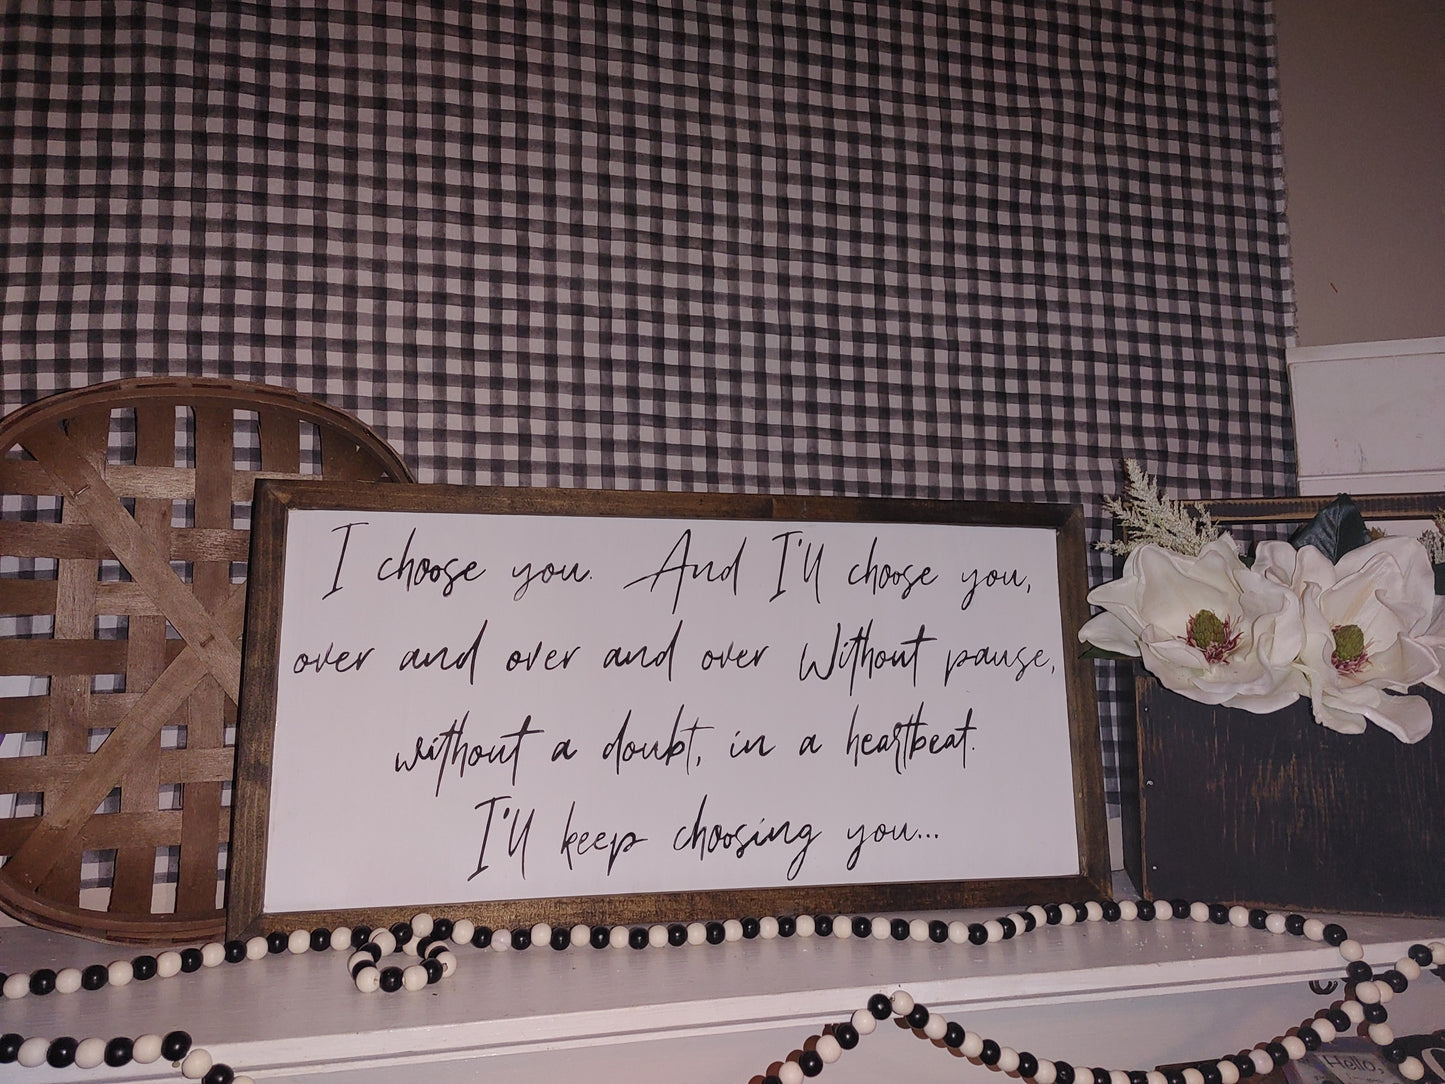 I choose you. And I'll choose you,
over and over and over Without pause,
without a doubt, in a heartbeat.
I'll keep choosing you...
Hello,